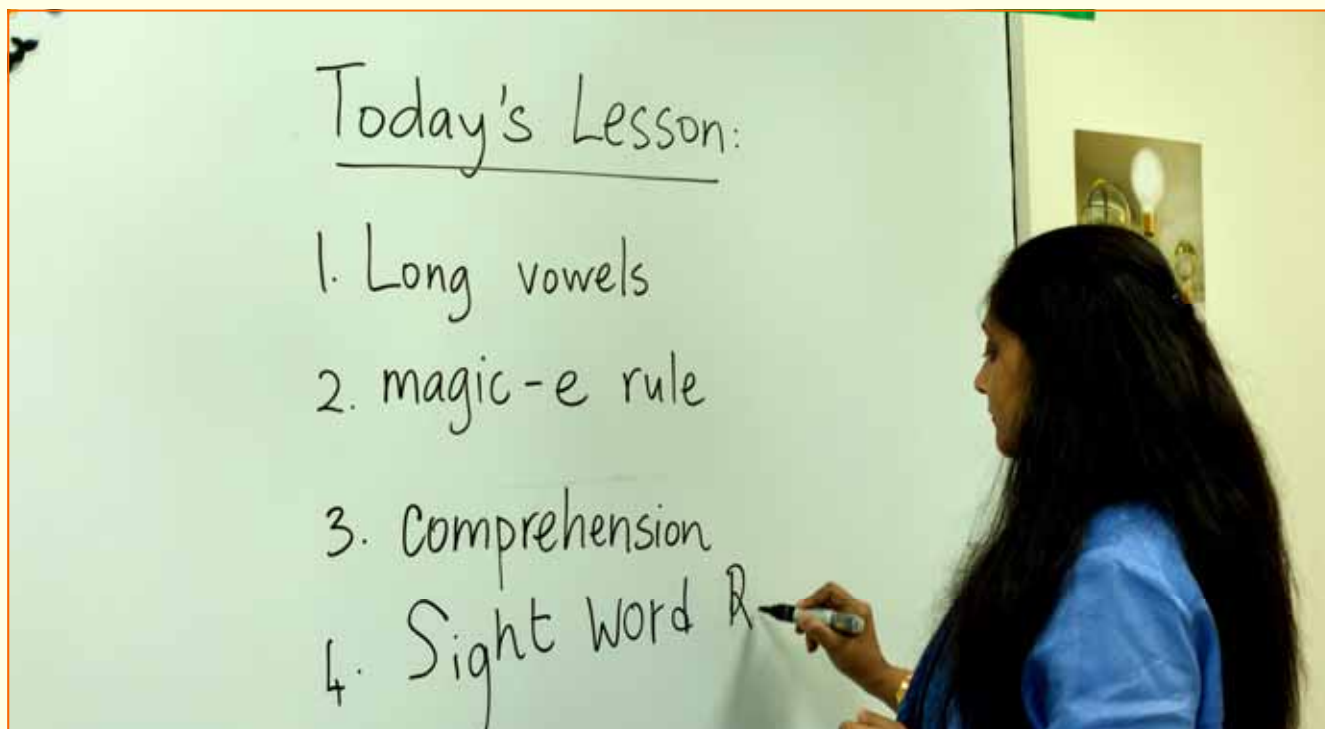 Today's Lesson:
1. Long vowels
2. magic-e rule
3. comprehension
4. Sight word R